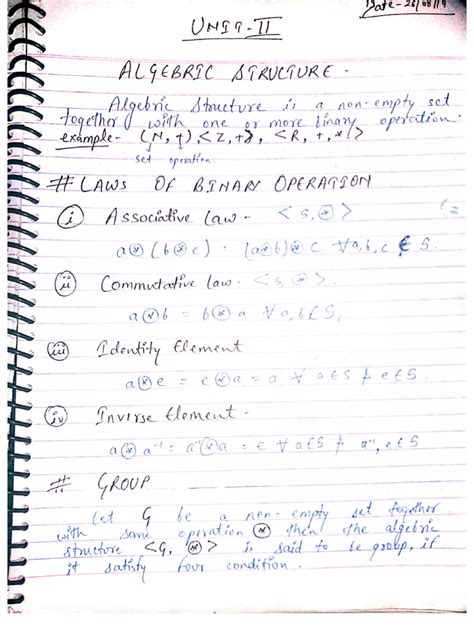 Date - 26/08/19
UNIT-II
ALGEBRIC STRUCTURE -
Algebric Structure is a non-empty set
together with one or more binary operation.
example - (N, +), <Z, +>, <R, +, *>
set operation
# LAWS OF BINARY OPERATION
(i) Associative Law - < S, ⊛ >
a ⊛ ( b ⊛ c ) = (a ⊛ b) ⊛ c ∀ a, b, c ∈ S.
(ii) Commutative Law - < S, ⊛ >
a ⊛ b = b ⊛ a ∀ a, b ∈ S.
(iii) Identity Element
a ⊛ e = e ⊛ a = a ∀ a ∈ S, e ∈ S.
(iv) Inverse Element -
a ⊛ a⁻¹ = a⁻¹ ⊛ a = e ∀ a ∈ S, a⁻¹, e ∈ S
# GROUP
Let G be a non-empty set together
with some operation ⊛ then the algebric
structure <G, ⊛> is said to be group, if
it satisfy four condition.